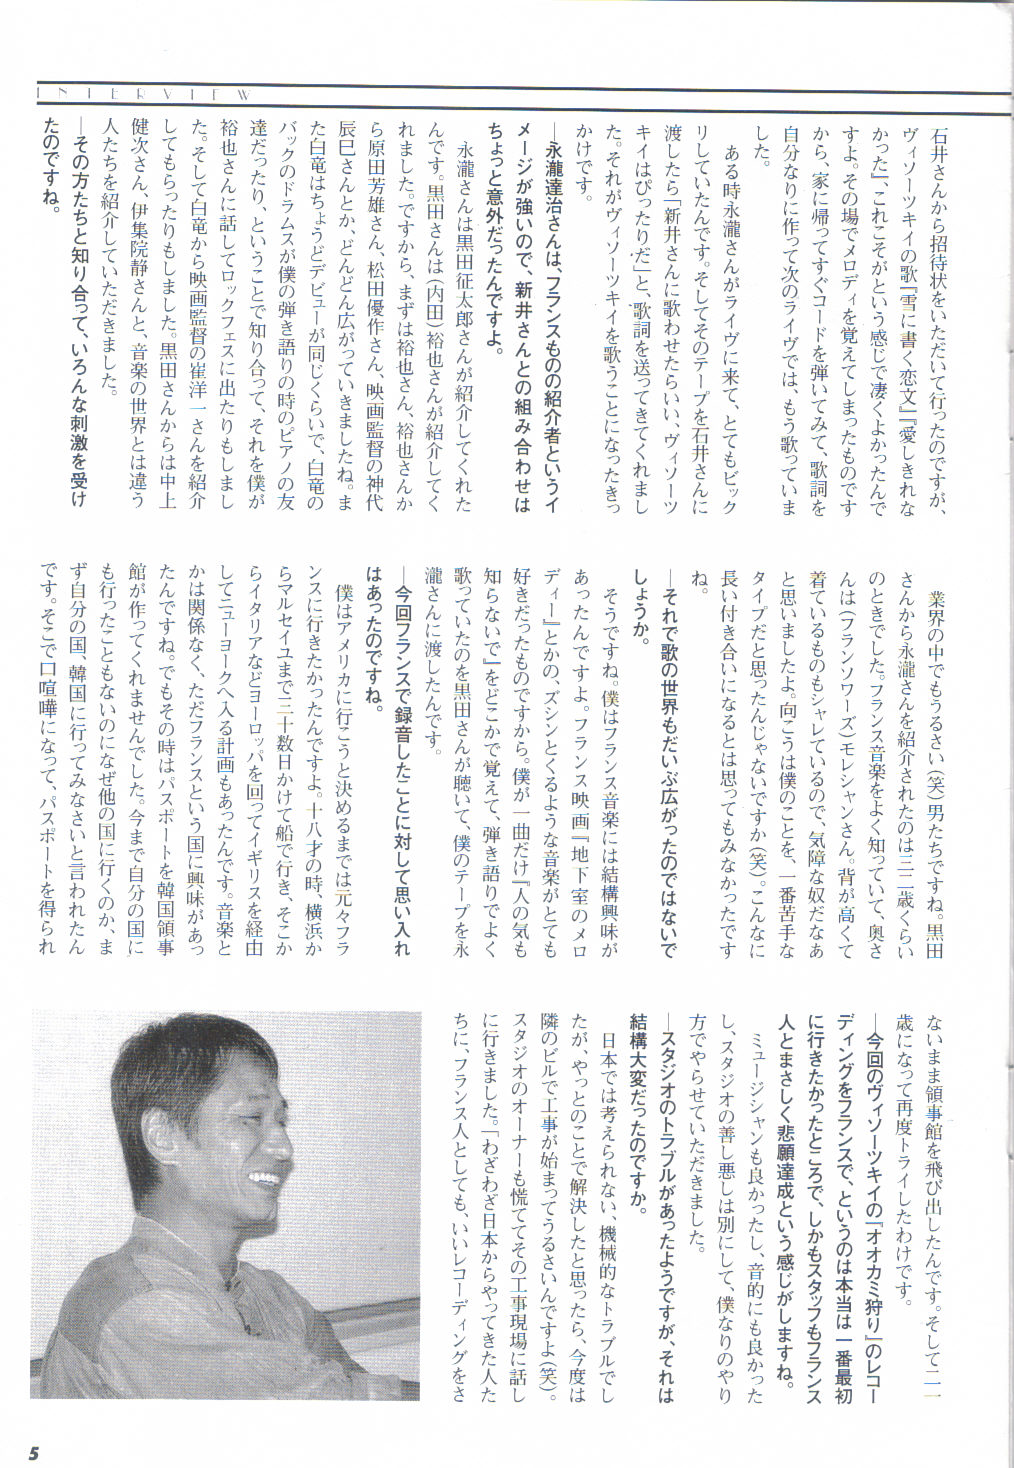 INTERVIEW
石井さんから招待状をいただいて行ったのですが、
ヴィソーツキイの歌『雪に書く恋文』『愛しきれな
かった』、これこそがという感じで凄くよかったんで
すよ。その場でメロディを覚えてしまったものです
から、家に帰ってすぐコードを弾いてみて、歌詞を
自分なりに作って次のライヴでは、もう歌っていま
した。
ある時永瀧さんがライヴに来て、とてもビック
リしていたんです。そしてそのテープを石井さんに
渡したら「新井さんに歌わせたらいい、ヴィソーツ
キイはぴったりだ」と、歌詞を送ってきてくれまし
た。それがヴィソーツキイを歌うことになったきっ
かけです。
―永瀧達治さんは、フランスものの紹介者というイ
メージが強いので、新井さんとの組み合わせは
ちょっと意外だったんですよ。
永瀧さんは黒田征太郎さんが紹介してくれた
んです。黒田さんは(内田)裕也さんが紹介してく
れました。ですから、まずは裕也さん、裕也さんか
ら原田芳雄さん、松田優作さん、映画監督の神代
辰巳さんとか、どんどん広がっていきましたね。ま
た白竜はちょうどデビューが同じくらいで、白竜の
バックのドラムスが僕の弾き語りの時のピアノの友
達だったり、ということで知り合って、それを僕が
裕也さんに話してロックフェスに出たりもしまし
た。そして白竜から映画監督の崔洋一さんを紹介
してもらったりもしました。黒田さんからは中上
健次さん、伊集院静さんと、音楽の世界とは違う
人たちを紹介していただきました。
―その方たちと知り合って、いろんな刺激を受け
たのですね。
業界の中でもうるさい(笑)男たちですね。黒田
さんから永瀧さんを紹介されたのは三二歳くらい
のときでした。フランス音楽をよく知っていて、奥さ
んは(フランソワーズ)モレシャンさん。背が高くて
着ているものもシャレているので、気障な奴だなあ
と思いましたよ。向こうは僕のことを、一番苦手な
タイプだと思ったんじゃないですか(笑)。こんなに
長い付き合いになるとは思ってもみなかったです
ね。
―それで歌の世界もだいぶ広がったのではないで
しょうか。
そうですね。僕はフランス音楽には結構興味が
あったんですよ。フランス映画『地下室のメロ
ディー』とかの、ズシンとくるような音楽がとても
好きだったものですから。僕が一曲だけ『人の気も
知らないで』をどこかで覚えて、弾き語りでよく
歌っていたのを黒田さんが聴いて、僕のテープを永
瀧さんに渡したんです。
―今回フランスで録音したことに対して思い入れ
はあったのですね。
僕はアメリカに行こうと決めるまでは元々フラ
ンスに行きたかったんですよ。十八才の時、横浜か
らマルセイユまで二十数日かけて船で行き、そこか
らイタリアなどヨーロッパを回ってイギリスを経由
してニューヨークへ入る計画もあったんです。音楽と
かは関係なく、ただフランスという国に興味があっ
たんですね。でもその時はパスポートを韓国領事
館が作ってくれませんでした。今まで自分の国に
も行ったこともないのになぜ他の国に行くのか、ま
ず自分の国、韓国に行ってみなさいと言われたん
です。そこで口喧嘩になって、パスポートを得られ
ないまま領事館を飛び出したんです。そして二一
歳になって再度トライしたわけです。
―今回のヴィソーツキイの『オオカミ狩り』のレコー
ディングをフランスで、というのは本当は一番最初
に行きたかったところで、しかもスタッフもフランス
人とまさしく悲願達成という感じがしますね。
ミュージシャンも良かったし、音的にも良かった
し、スタジオの善し悪しは別にして、僕なりのやり
方でやらせていただきました。
―スタジオのトラブルがあったようですが、それは
結構大変だったのですか。
日本では考えられない、機械的なトラブルでし
たが、やっとのことで解決したと思ったら、今度は
隣のビルで工事が始まってうるさいんですよ(笑)。
スタジオのオーナーも慌ててその工事現場に話し
に行きました。「わざわざ日本からやってきた人た
ちに、フランス人としても、いいレコーディングをさ
5